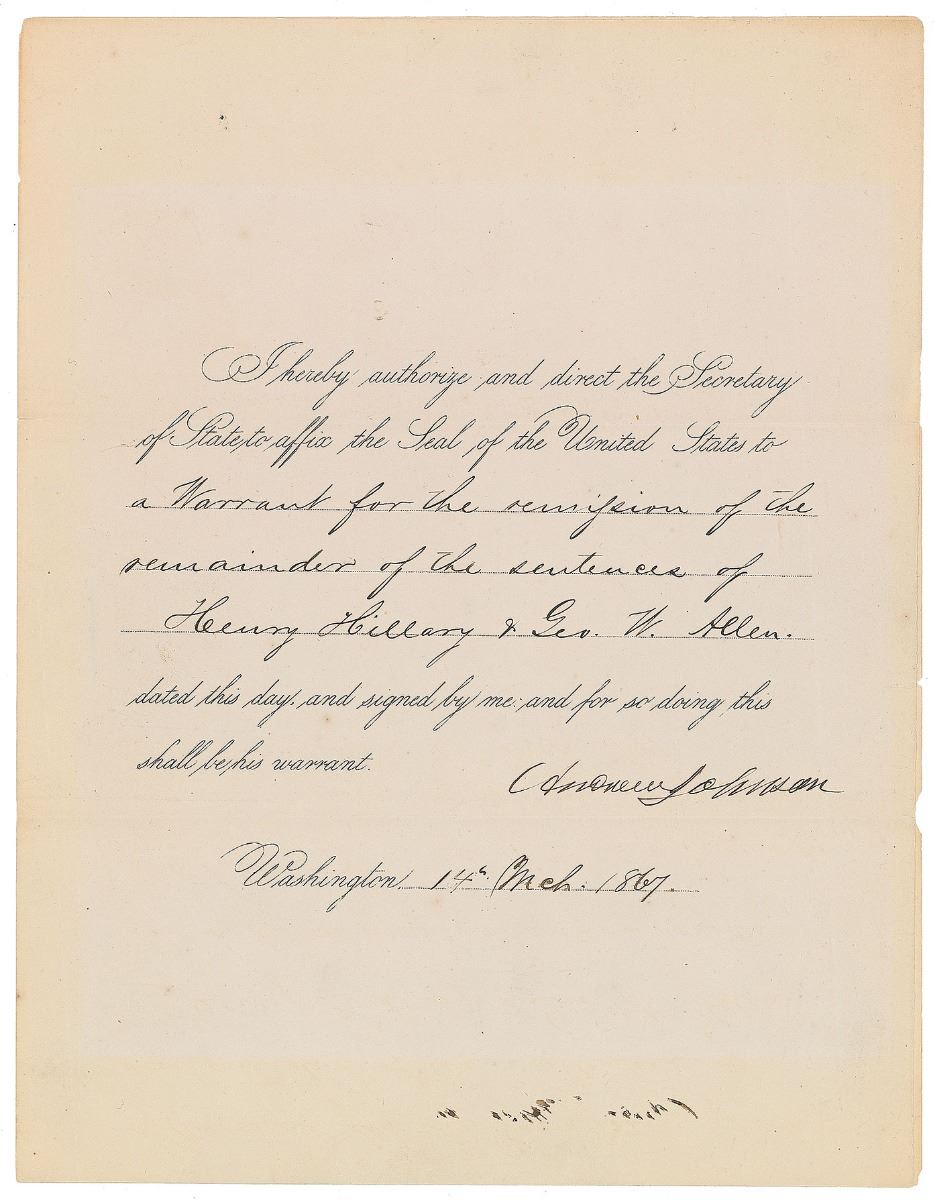 I hereby authorize and direct the Secretary
of State to affix the Seal of the United States to
a Warrant for the remission of the
remainder of the sentences of
Henry Hillary & Geo. W. Allen.
dated this day, and signed by me: and for so doing this
shall be his warrant.
Andrew Johnson
Washington, 14th Mch. 1867.